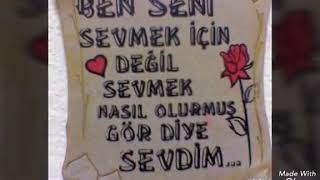 BEN SENİ
SEVMEK İÇİN
DEĞİL
SEVMEK
NASIL OLURMUŞ
GÖR DİYE
SEVDİM...
Made With